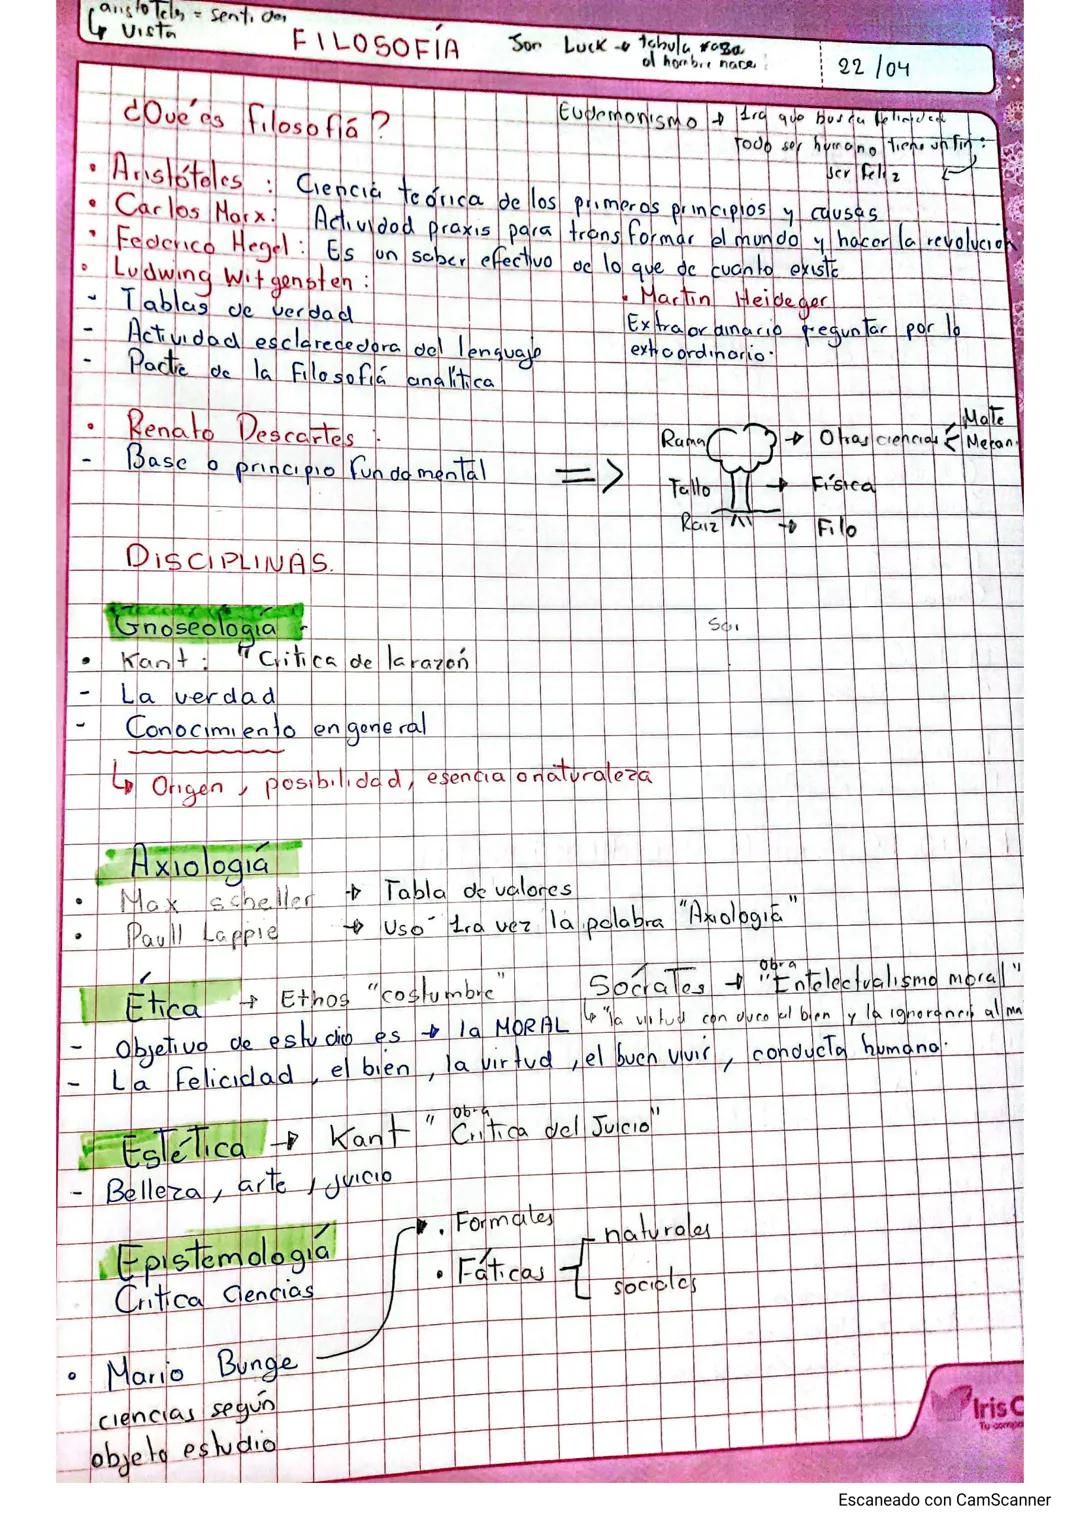 aristoteles = sentidos
↳ vista
FILOSOFÍA
Jon Luck → tabula rasa
el hombre nace
22/04
¿Qué es filosofía?
Eudemonismo → 1ra que busca felicidad
Todo ser humano tiene un fin:
ser feliz
• Aristóteles : Ciencia teórica de los primeros principios y causas
• Carlos Marx: Actividad praxis para transformar el mundo y hacer la revolucion
• Federico Hegel: Es un saber efectivo de lo que de cuanto existe
• Ludwing Witgensten :
- Tablas de verdad
- Actividad esclarecedora del lenguaje
- Parte de la filosofía analítica
• Martin Heideger
Extraordinario preguntar por lo
extraordinario.
• Renato Descartes :
- Base o principio fundamental
=>
Rama → Otras ciencias < Mate
Mecan.
Tallo → Física
Raiz → Filo
DISCIPLINAS.
Gnoseología
• Kant : "Critica de la razón
- La verdad
- Conocimiento en general
↳ Origen, posibilidad, esencia o naturaleza
Axiología
• Max scheller → Tabla de valores
• Paull Lappie → Usó 1ra vez la palabra "Axiología"
Ética → Ethos "costumbre"
Sócrates → obra "Entelectualismo moral"
↳ "la virtud conduce al bien y la ignorancia al ma
- Objetivo de estudio es → la MORAL
- La felicidad, el bien, la virtud, el buen vivir, conducta humana.
Estética → Kant " obra Critica del Juicio"
- Belleza, arte, juicio
Epistemología
Critica Ciencias
• Formales
• Fáticas
naturales
sociales
• Mario Bunge
ciencias según
objeto estudio
Iris C
Tu compa
Escaneado con CamScanner